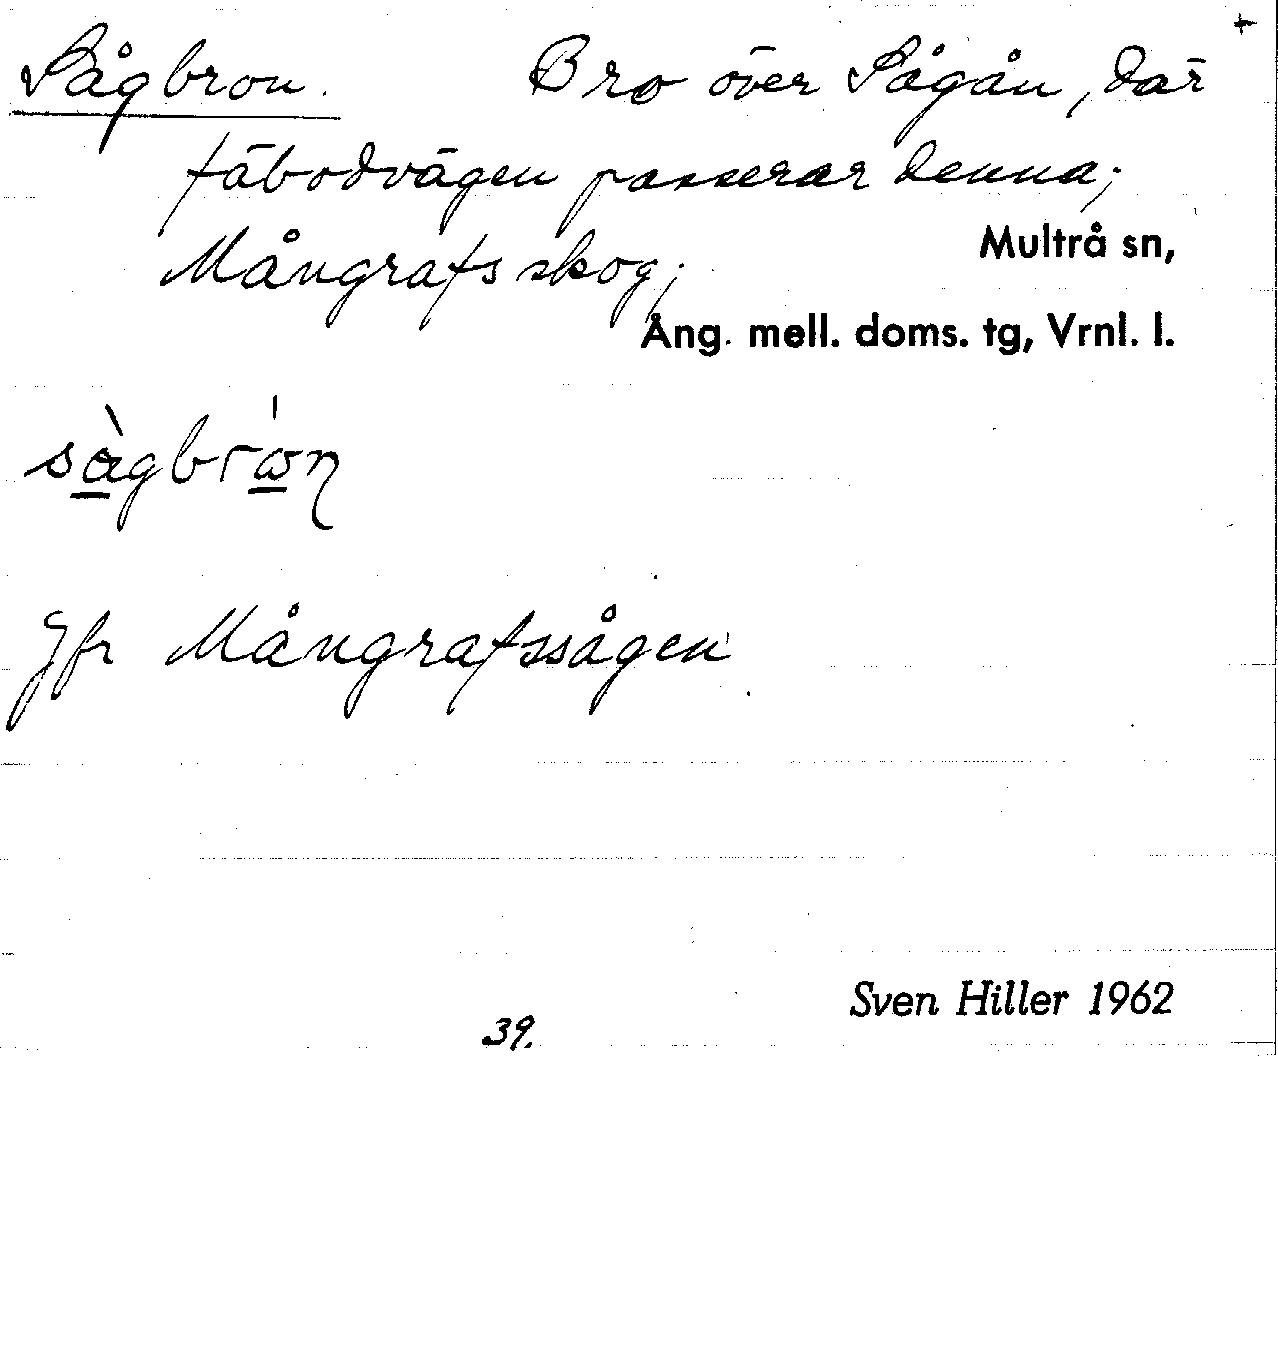 +
Sågbron. Bro över Sågån, där
fäbodvägen passerar denna;
Mångrafs skog;
Multrå sn,
Ång. mell. doms. tg, Vrnl. l.
sàgbrón
Jfr Mångrafssågen
Sven Hiller 1962
39.